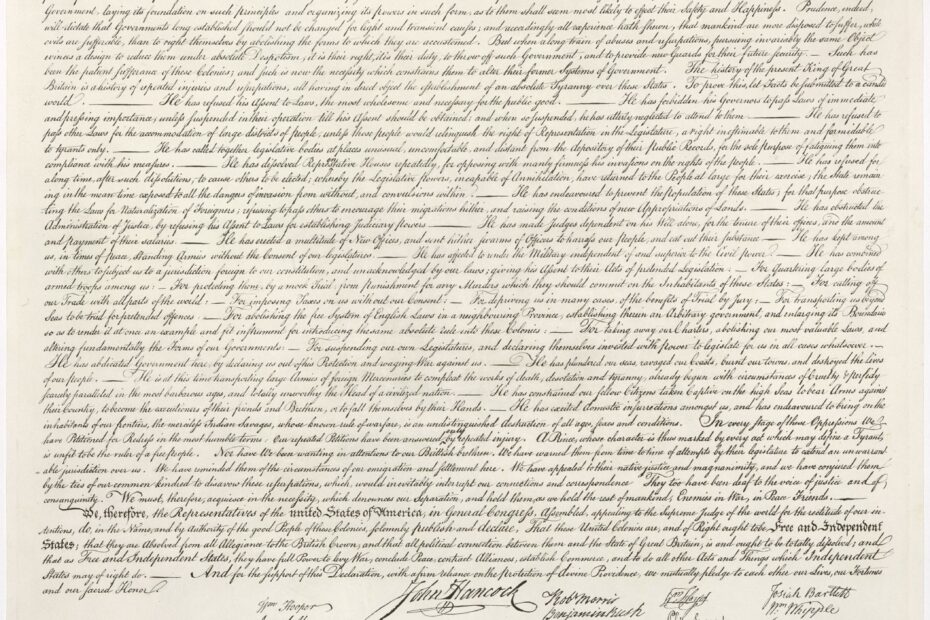 Government, laying its foundation on such principles and organizing its powers in such form, as to them shall seem most likely to effect their Safety and Happiness. Prudence, indeed,
will dictate that Governments long established should not be changed for light and transient causes; and accordingly all experience hath shewn, that mankind are more disposed to suffer, while
evils are sufferable, than to right themselves by abolishing the forms to which they are accustomed. But when a long train of abuses and usurpations, pursuing invariably the same Object
evinces a design to reduce them under absolute Despotism, it is their right, it is their duty, to throw off such Government, and to provide new Guards for their future security. — Such has
been the patient sufferance of these Colonies; and such is now the necessity which constrains them to alter their former Systems of Government. The history of the present King of Great
Britain is a history of repeated injuries and usurpations, all having in direct object the establishment of an absolute Tyranny over these States. To prove this, let Facts be submitted to a candid
world. — He has refused his Assent to Laws, the most wholesome and necessary for the public good. — He has forbidden his Governors to pass Laws of immediate
and pressing importance, unless suspended in their operation till his Assent should be obtained; and when so suspended, he has utterly neglected to attend to them. — He has refused to
pass other Laws for the accommodation of large districts of people, unless those people would relinquish the right of Representation in the Legislature, a right inestimable to them and formidable
to tyrants only. — He has called together legislative bodies at places unusual, uncomfortable, and distant from the depository of their Public Records, for the sole purpose of fatiguing them into
compliance with his measures. — He has dissolved Representative Houses repeatedly, for opposing with manly firmness his invasions on the rights of the people. — He has refused for
a long time, after such dissolutions, to cause others to be elected; whereby the Legislative powers, incapable of Annihilation, have returned to the People at large for their exercise; the State remain
ing in the mean time exposed to all the dangers of invasion from without, and convulsions within. — He has endeavoured to prevent the population of these States; for that purpose obstruc
ting the Laws for Naturalization of Foreigners; refusing to pass others to encourage their migrations hither, and raising the conditions of new Appropriations of Lands. — He has obstructed the
Administration of Justice, by refusing his Assent to Laws for establishing Judiciary powers — He has made Judges dependent on his Will alone, for the tenure of their offices, and the amount
and payment of their salaries. — He has erected a multitude of New Offices, and sent hither swarms of Officers to harrass our people, and eat out their substance. — He has kept among
us, in times of peace, Standing Armies without the Consent of our legislatures. — He has affected to render the Military independent of and superior to the Civil power. — He has combined
with others to subject us to a jurisdiction foreign to our constitution, and unacknowledged by our laws; giving his Assent to their Acts of pretended Legislation: — For Quartering large bodies of
armed troops among us: — For protecting them, by a mock Trial, from punishment for any Murders which they should commit on the Inhabitants of these States: — For cutting off
our Trade with all parts of the world: — For imposing Taxes on us without our Consent: — For depriving us in many cases, of the benefits of Trial by jury: — For transporting us beyond
Seas to be tried for pretended offences — For abolishing the free System of English Laws in a neighbouring Province, establishing therein an Arbitrary government, and enlarging its Boundaries
so as to render it at once an example and fit instrument for introducing the same absolute rule into these Colonies: — For taking away our Charters, abolishing our most valuable Laws, and
altering fundamentally the Forms of our Governments: — For suspending our own Legislatures, and declaring themselves invested with power to legislate for us in all cases whatsoever. —
He has abdicated Government here, by declaring us out of his Protection and waging War against us. — He has plundered our seas, ravaged our Coasts, burnt our towns, and destroyed the lives
of our people. — He is at this time transporting large Armies of foreign Mercenaries to compleat the works of death, desolation and tyranny, already begun with circumstances of Cruelty & perfidy
scarcely paralleled in the most barbarous ages, and totally unworthy the Head of a civilized nation. — He has constrained our fellow Citizens taken Captive on the high Seas to bear Arms against
their Country, to become the executioners of their friends and Brethren, or to fall themselves by their Hands. — He has excited domestic insurrections amongst us, and has endeavoured to bring on the
inhabitants of our frontiers, the merciless Indian Savages, whose known rule of warfare, is an undistinguished destruction of all ages, sexes and conditions. In every stage of these Oppressions We
have Petitioned for Redress in the most humble terms: Our repeated Petitions have been answered only by repeated injury. A Prince, whose character is thus marked by every act which may define a Tyrant,
is unfit to be the ruler of a free people. Nor have We been wanting in attentions to our Brittish brethren. We have warned them from time to time of attempts by their legislature to extend an unwarrant
able jurisdiction over us. We have reminded them of the circumstances of our emigration and settlement here. We have appealed to their native justice and magnanimity, and we have conjured them
by the ties of our common kindred to disavow these usurpations, which, would inevitably interrupt our connections and correspondence They too have been deaf to the voice of justice and of
consanguinity. We must, therefore, acquiesce in the necessity, which denounces our Separation, and hold them, as we hold the rest of mankind, Enemies in War, in Peace Friends. —
We, therefore, the Representatives of the united States of America, in General Congress, Assembled, appealing to the Supreme Judge of the world for the rectitude of our in
tentions, do, in the Name, and by Authority of the good People of these Colonies, solemnly publish and declare, That these United Colonies are, and of Right ought to be Free and Independent
States; that they are Absolved from all Allegiance to the British Crown, and that all political connection between them and the State of Great Britain, is and ought to be totally dissolved; and
that as Free and Independent States, they have full Power to levy War, conclude Peace, contract Alliances, establish Commerce, and to do all other Acts and Things which Independent
States may of right do. — And for the support of this Declaration, with a firm reliance on the protection of divine Providence, we mutually pledge to each other our Lives, our Fortunes
and our sacred Honor.
John Hancock Robt Morris Josiah Bartlett
Wm Hooper Benjamin Rush Wm Whipple